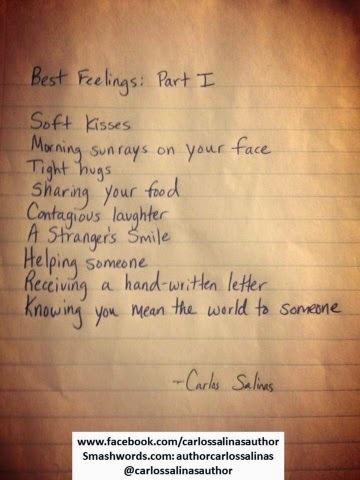 Best Feelings: Part I
Soft Kisses
Morning sunrays on your face
Tight hugs
Sharing your food
Contagious laughter
A Stranger's Smile
Helping someone
Receiving a hand-written letter
Knowing you mean the world to someone
-Carlos Salinas
www.facebook.com/carlossalinasauthor
Smashwords.com: authorcarlossalinas
@carlossalinasauthor